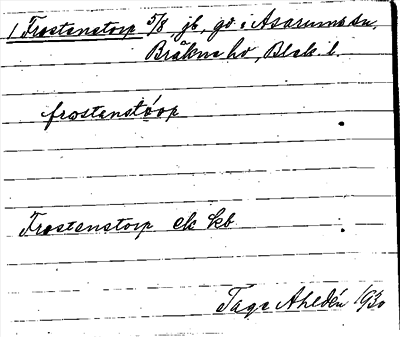 1 Frostenstorp 5/8 jb, gd i Asarums sn,
Bräkne hd, Blek. l.
frostenstórp
Frostenstorp ek kb
Tage Ahldén 1930